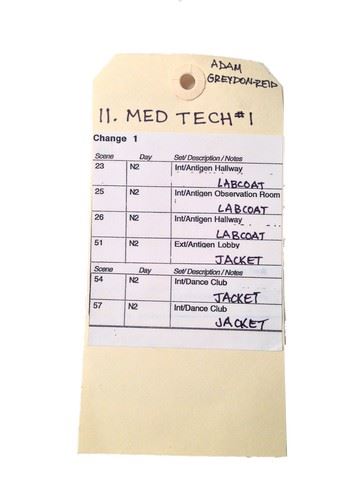 ADAM
GREYDON-REID
11. MED TECH #1
Change 1
Scene Day Set/Description/Notes
23 N2 Int/Antigen Hallway
LABCOAT
25 N2 Int/Antigen Observation Room
LABCOAT
26 N2 Int/Antigen Hallway
LABCOAT
51 N2 Ext/Antigen Lobby
JACKET
Scene Day Set/Description/Notes
54 N2 Int/Dance Club
JACKET
57 N2 Int/Dance Club
JACKET